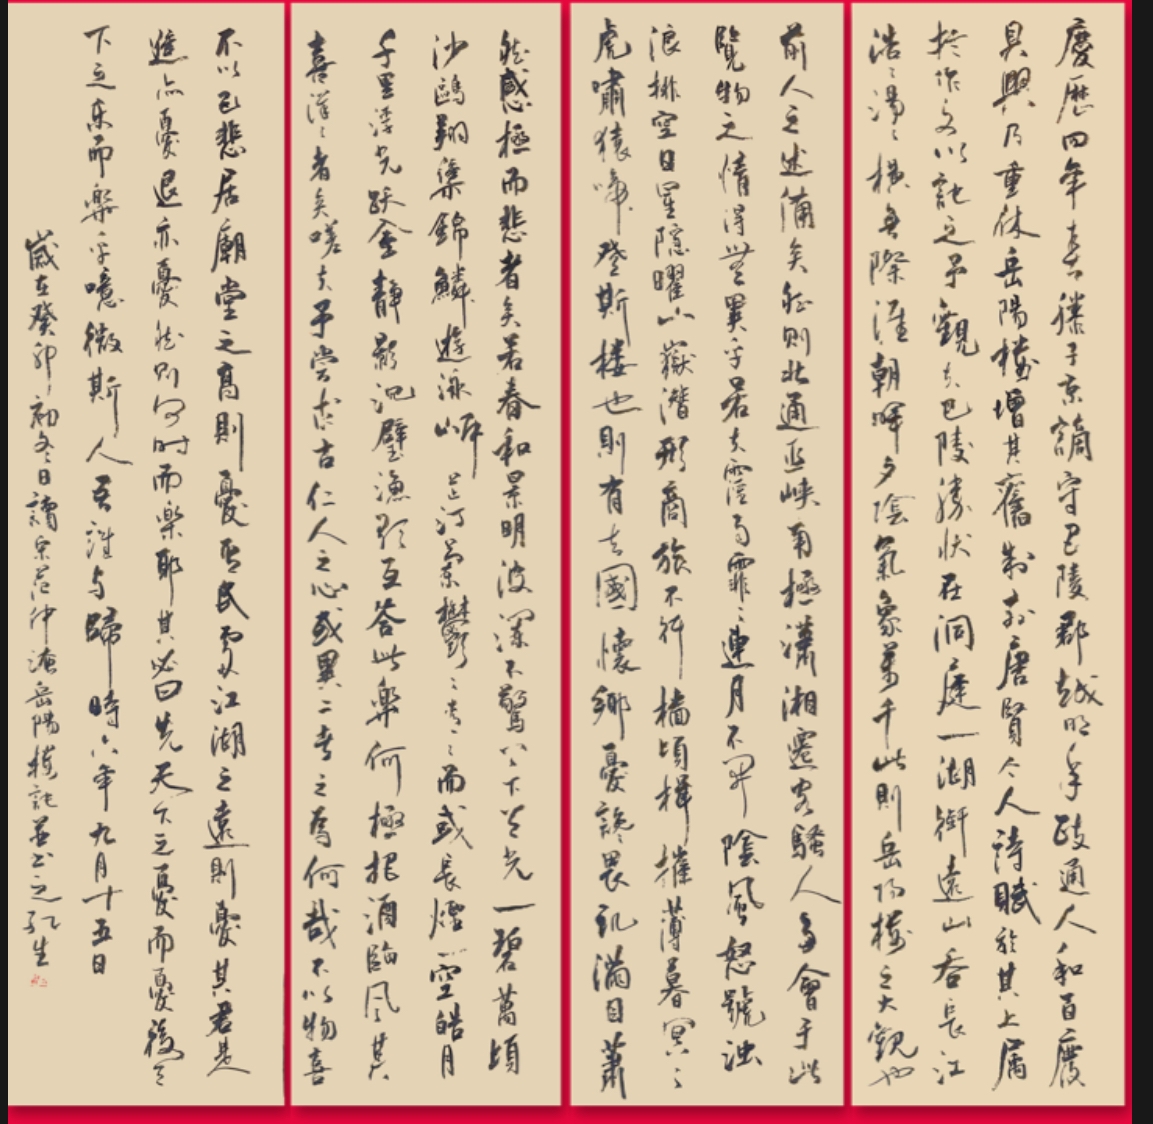 慶歷四年春滕子京謫守巴陵郡越明年政通人和百廢
具興乃重修岳陽樓增其舊制刻唐賢今人詩賦於其上屬
於作文以記之予觀夫巴陵勝狀在洞庭一湖銜遠山吞長江
浩〻湯〻橫無際涯朝暉夕陰氣象萬千此則岳陽樓之大觀也
前人之述備矣然則北通巫峽南極瀟湘遷客騷人多會于此
覽物之情得無異乎若夫霪雨霏〻連月不開陰風怒號濁
浪排空日星隱曜山嶽潛形商旅不行檣傾楫摧薄暮冥〻
虎嘯猿啼登斯樓也則有去國懷鄉憂讒畏譏滿目蕭
然感極而悲者矣若春和景明波瀾不驚上下天光一碧萬頃
沙鷗翔集錦鱗遊泳岸芷汀蘭鬱〻青〻而或長煙一空皓月
千里浮光躍金靜影沉璧漁歌互答此樂何極把酒臨風其
喜洋〻者矣嗟夫予嘗求古仁人之心或異二者之為何哉不以物喜
不以己悲居廟堂之高則憂其民處江湖之遠則憂其君是
進亦憂退亦憂然則何時而樂耶其必曰先天下之憂而憂後天
下之樂而樂乎噫微斯人吾誰与歸時六年九月十五日
歲在癸卯初冬日讀宋范仲淹岳陽樓記並書之